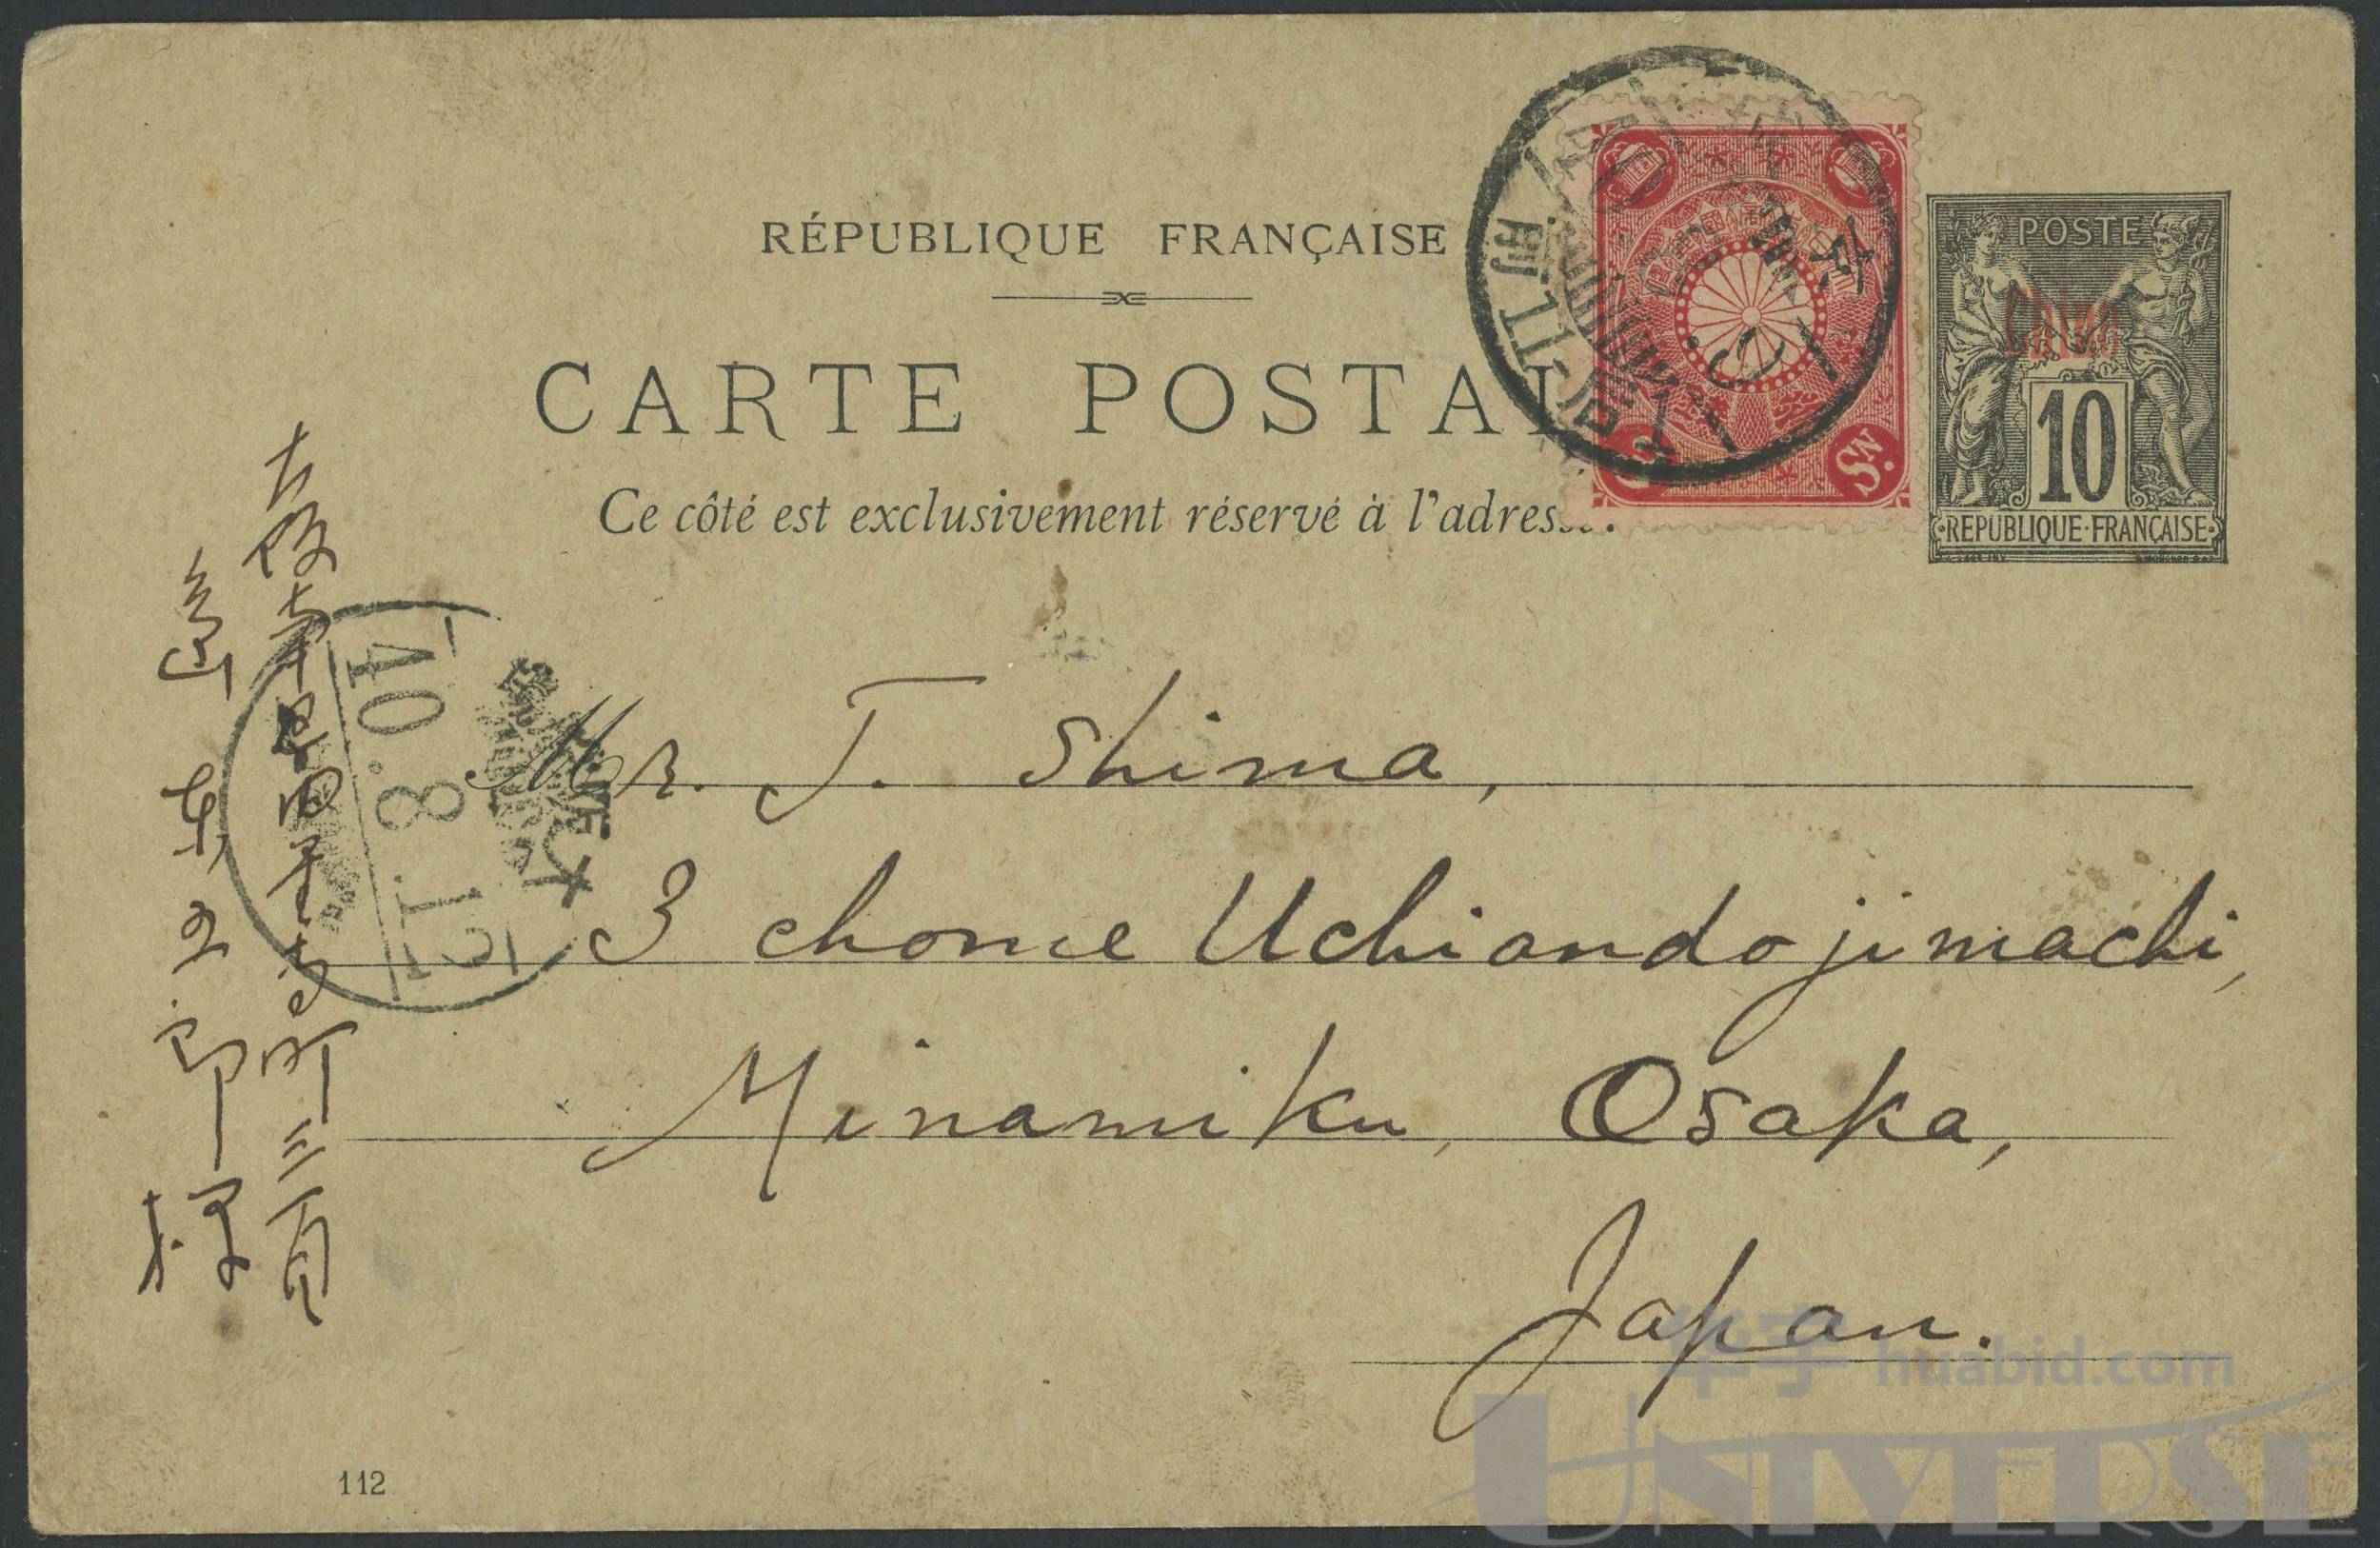 RÉPUBLIQUE FRANÇAISE
CARTE POSTAL
Ce côté est exclusivement réservé à l'adresse.
POSTE
Chine
10
REPUBLIQUE·FRANÇAISE
SN.
40
9
前11
Mr. T. Shima,
3 chome Uchiandojimachi,
Minamiku, Osaka,
Japan.
大阪市南区内安堂寺町三丁目
島
郎様
大阪
40.8.15
112
华宇 huabid.com
UNIVERSE